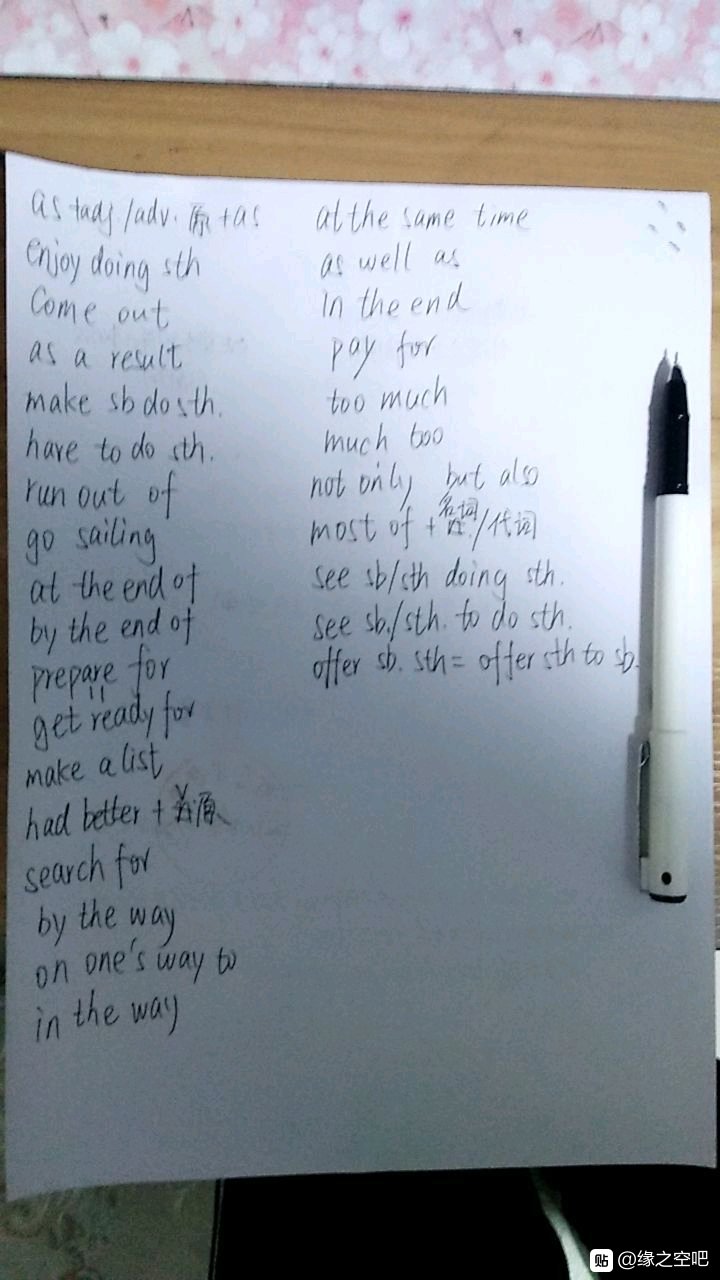 as +adj/adv. 原 +as
enjoy doing sth
Come out
as a result
make sb do sth.
have to do sth.
run out of
go sailing
at the end of
by the end of
prepare for
get ready for
make a list
had better + V原
search for
by the way
on one's way to
in the way
at the same time
as well as
In the end
pay for
too much
much too
not only but also
most of + 名词/代词
see sb/sth doing sth.
see sb./sth. to do sth.
offer sb. sth = offer sth to sb.
贴 @缘之空吧